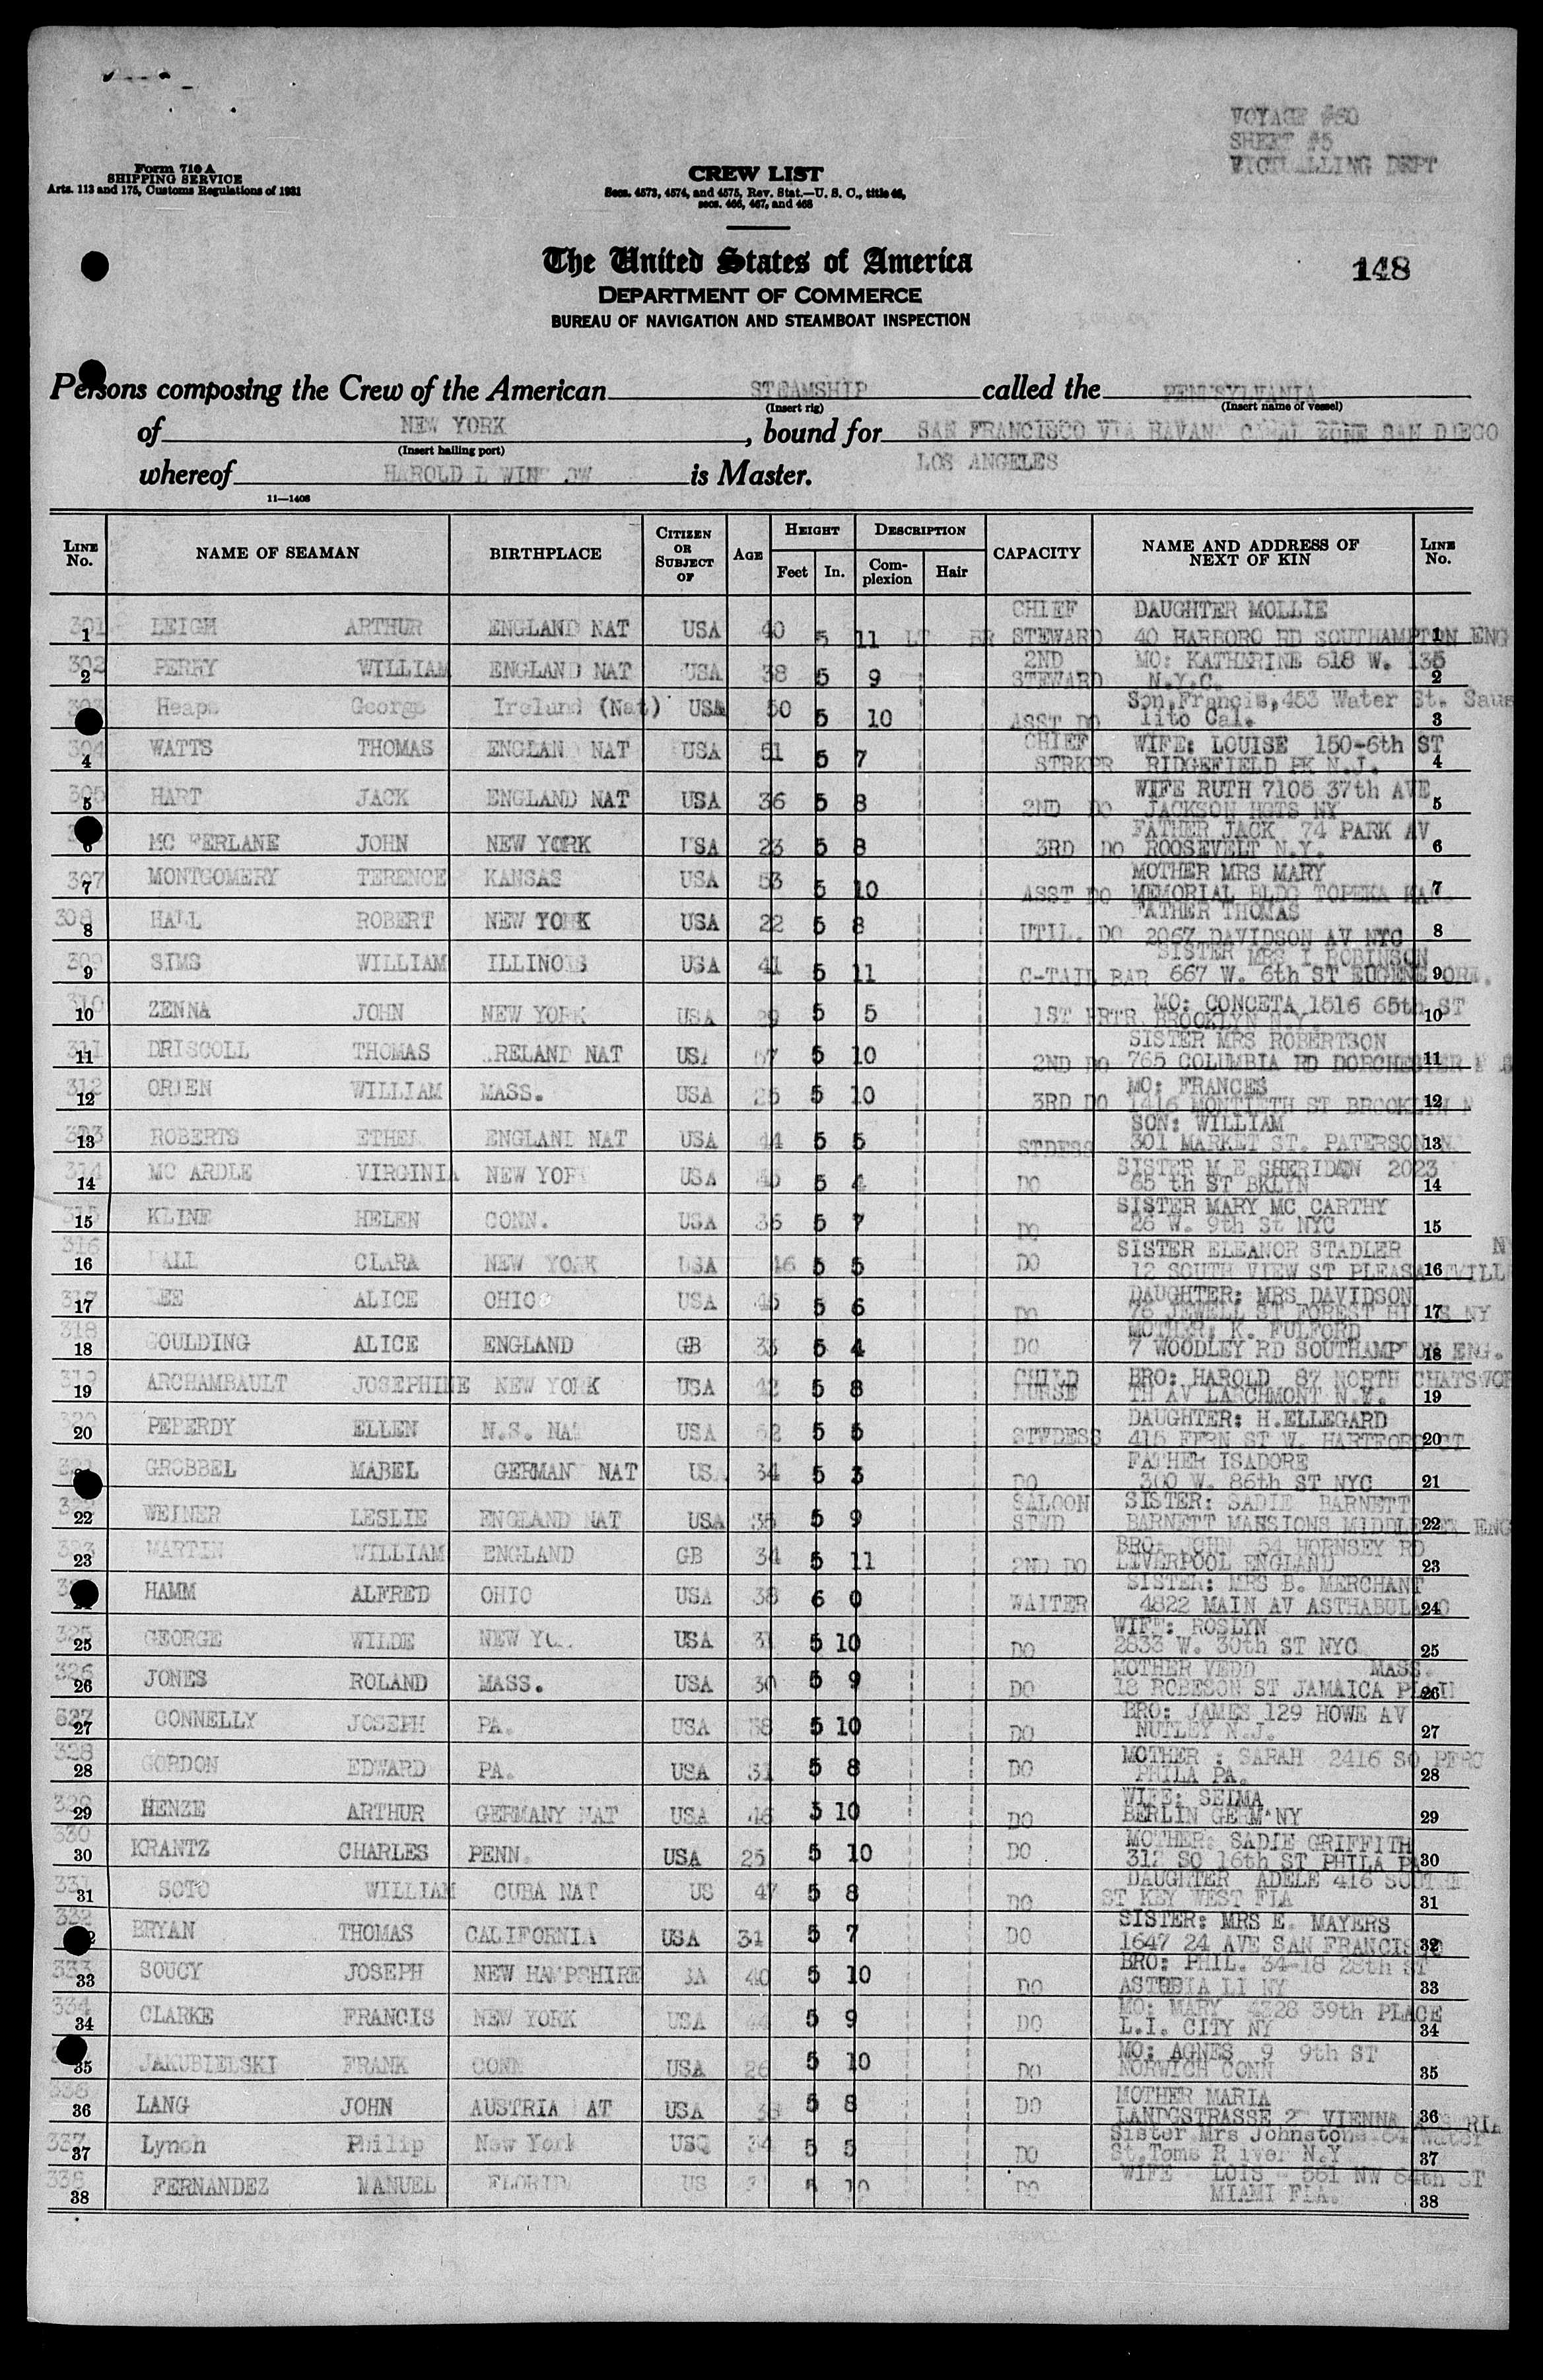 VOYAGE #60
SHEET #5
VICTUALLING DEPT
Form 710 A
SHIPPING SERVICE
Arts. 113 and 175, Customs Regulations of 1931
CREW LIST
Secs. 4573, 4574, and 4575, Rev. Stat.—U. S. C., title 46,
secs. 466, 467, and 468
The United States of America
148
DEPARTMENT OF COMMERCE
BUREAU OF NAVIGATION AND STEAMBOAT INSPECTION
Persons composing the Crew of the American STEAMSHIP called the PENNSYLVANIA
(Insert rig) (Insert name of vessel)
of NEW YORK, bound for SAN FRANCISCO VIA HAVANA CANAL ZONE SAN DIEGO
(Insert hailing port) LOS ANGELES
whereof HAROLD L is Master.
11—1408
LINE No. NAME OF SEAMAN BIRTHPLACE CITIZEN OR SUBJECT OF AGE HEIGHT Feet In. DESCRIPTION Complexion Hair CAPACITY NAME AND ADDRESS OF NEXT OF KIN LINE No.
301 1 LEIGH ARTHUR ENGLAND NAT USA 40 5 11 LT BR CHIEF STEWARD DAUGHTER MOLLIE 40 HARBORO RD SOUTHAMPTON ENG 1
302 2 PERRY WILLIAM ENGLAND NAT USA 38 5 9 2ND STEWARD MO: KATHERINE 618 W. 135 N.Y.C. 2
Heaps George Ireland (Nat) USA 50 5 10 ASST DO Son, Francis, 453 Water St. Saus lito Cal. 3
304 4 WATTS THOMAS ENGLAN NAT USA 51 5 7 CHIEF STRKPR WIFE: LOUISE 150-6th ST RIDGEFIELD PK N.J. 4
305 5 HART JACK ENGLAND NAT USA 36 5 8 2ND DO WIFE RUTH 7108 37th AVE JACKSON HGTS NY 5
6 MC FERLANE JOHN NEW YORK USA 23 5 8 3RD DO FATHER JACK 74 PARK AV ROOSEVELT N.Y. 6
307 7 MONTGOMERY TERENCE KANSAS USA 53 5 10 ASST DO MOTHER MRS MARY MEMORIAL BLDG TOPEKA KAN. 7
308 8 HALL ROBERT NEW YORK USA 22 5 8 UTIL. DO FATHER THOMAS 2067 DAVIDSON AV NYC 8
309 9 SIMS WILLIAM ILLINOIS USA 41 5 11 C-TAIL BAR SISTER MRS I ROBINSON 667 W. 6th ST EUGENE ORE. 9
310 10 ZENNA JOHN NEW YORK USA 29 5 5 1ST PRTR MO: CONCETA 1516 65th ST BROOKLYN N.Y. 10
311 11 DRISCOLL THOMAS IRELAND NAT USA 57 5 10 2ND DO SISTER MRS ROBERTSON 765 COLUMBIA RD DORCHESTER 11
312 12 ORIEN WILLIAM MASS. USA 25 5 10 3RD DO MO: FRANCES 1416 MONTIETH ST BROOKLYN N 12
313 13 ROBERTS ETHEL ENGLAND NAT USA 44 5 5 STDESS SON: WILLIAM 301 MARKET ST. PATERSON 13
314 14 MC ARDLE VIRGINIA NEW YORK USA 5 4 DO SISTER M E SHERIDAN 2023 65 th ST BKLYN 14
315 15 KLINE HELEN CONN. USA 36 5 7 DO SISTER MARY MC CARTHY 26 W. 9th St NYC 15
316 16 CLARA NEW YORK USA 46 5 5 DO SISTER ELEANOR STADLER NY 12 SOUTH VIEW ST PLEASANTVILL 16
317 17 LEE ALICE OHIO USA 45 5 6 DO DAUGHTER: MRS DAVIDSON 76 JEWELL ST FOREST HILLS NY 17
318 18 GOULDING ALICE ENGLAND GB 33 5 4 DO MOTHER: K. FULFORD 7 WOODLEY RD SOUTHAMPTON ENG. 18
319 19 ARCHAMBAULT JOSEPHINE NEW YORK USA 42 5 8 CHILD NURSE BRO: HAROLD 87 NORTH CHATSWOR TH AV LARCHMONT N.Y. 19
320 20 PEPERDY ELLEN N.S. NAT USA 52 5 5 STWDESS DAUGHTER: H.ELLEGARD 415 FERN ST W. HARTFORD CT 20
321 GROBBEL MABEL GERMANY NAT USA 34 5 3 DO FATHER ISADORE 300 W. 86th ST NYC 21
322 22 WEINER LESLIE ENGLAND NAT USA 35 5 9 SALOON STWD SISTER: SADIE BARNETT BARNETT MANSIONS MIDDLESEX ENG 22
323 23 MARTIN WILLIAM ENGLAND GB 34 5 11 2ND DO BRO: JOHN 54 HORNSEY RD LIVERPOOL ENGLAND 23
HAMM ALFRED OHIO USA 38 6 0 WAITER SISTER: MRS B. MERCHANT 4822 MAIN AV ASTHABULA O 24
325 25 GEORGE WILDE NEW YO USA 31 5 10 DO WIFE: ROSLYN 2833 W. 30th ST NYC 25
326 26 JONES ROLAND MASS. USA 30 5 9 DO MOTHER VEDD MASS. 18 ROBESON ST JAMAICA PLAIN 26
327 27 CONNELLY JOSEPH PA. USA 38 5 10 DO BRO: JAMES 129 HOWE AV NUTLEY N.J. 27
328 28 GORDON EDWARD PA. USA 31 5 8 DO MOTHER : SARAH 2416 SO PHILA PA. 28
329 29 HENZE ARTHUR GERMANY NAT USA 46 5 10 DO WIFE: SELMA BERLIN GERMANY 29
330 30 KRANTZ CHARLES PENN. USA 25 5 10 DO MOTHER: SADIE GRIFFITH 312 SO 16th ST PHILA PA 30
331 31 SOTO WILLIAM CUBA NAT US 47 5 8 DO DAUGHTER ADELE 416 ST KEY WEST FLA 31
332 BRYAN THOMAS CALIFORNIA USA 31 5 7 DO SISTER: MRS E. MAYERS 1647 24 AVE SAN FRANCISCO 32
333 33 SOUCY JOSEPH NEW HAMPSHIRE SA 40 5 10 DO BRO: PHIL. 34-18 28th ST ASTORIA LI NY 33
334 34 CLARKE FRANCIS NEW YORK USA 44 5 9 DO MO: MARY 4328 39th PLACE L.I. CITY NY 34
35 JAKUBIELSKI FRANK CONN USA 26 5 10 DO MO: AGNES 9 9th ST NORWICH CONN 35
336 36 LANG JOHN AUSTRIA NAT USA 38 5 8 DO MOTHER MARIA LANDGSTRASSE 2 VIENNA AUSTRIA 36
337 37 Lynch Philip New York USQ 34 5 5 DO Sister Mrs Johnstone 64 Water St. Toms River N.Y 37
338 38 FERNANDEZ MANUEL FLORIDA US 5 10 DO WIFE LOIS - 561 NW 64th ST MIAMI FLA. 38